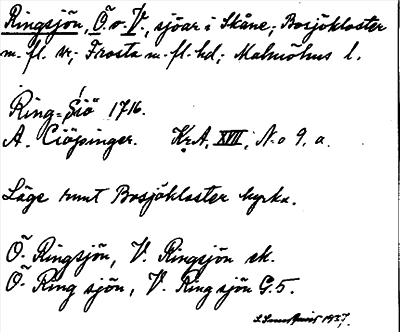 Ringsjön, Ö. o. V., sjöar i Skåne; Bosjökloster
m. fl. sr; Frosta m. fl. hd; Malmöhus l.
Ring-Siö 1716.
A. Ciöpinger. Kr.A, XVII, No 9, a.
Läge runt Bosjökloster kyrka.
Ö. Ringsjön, V. Ringsjön ek.
Ö. Ringsjön, V. Ringsjön G.5.
1927.